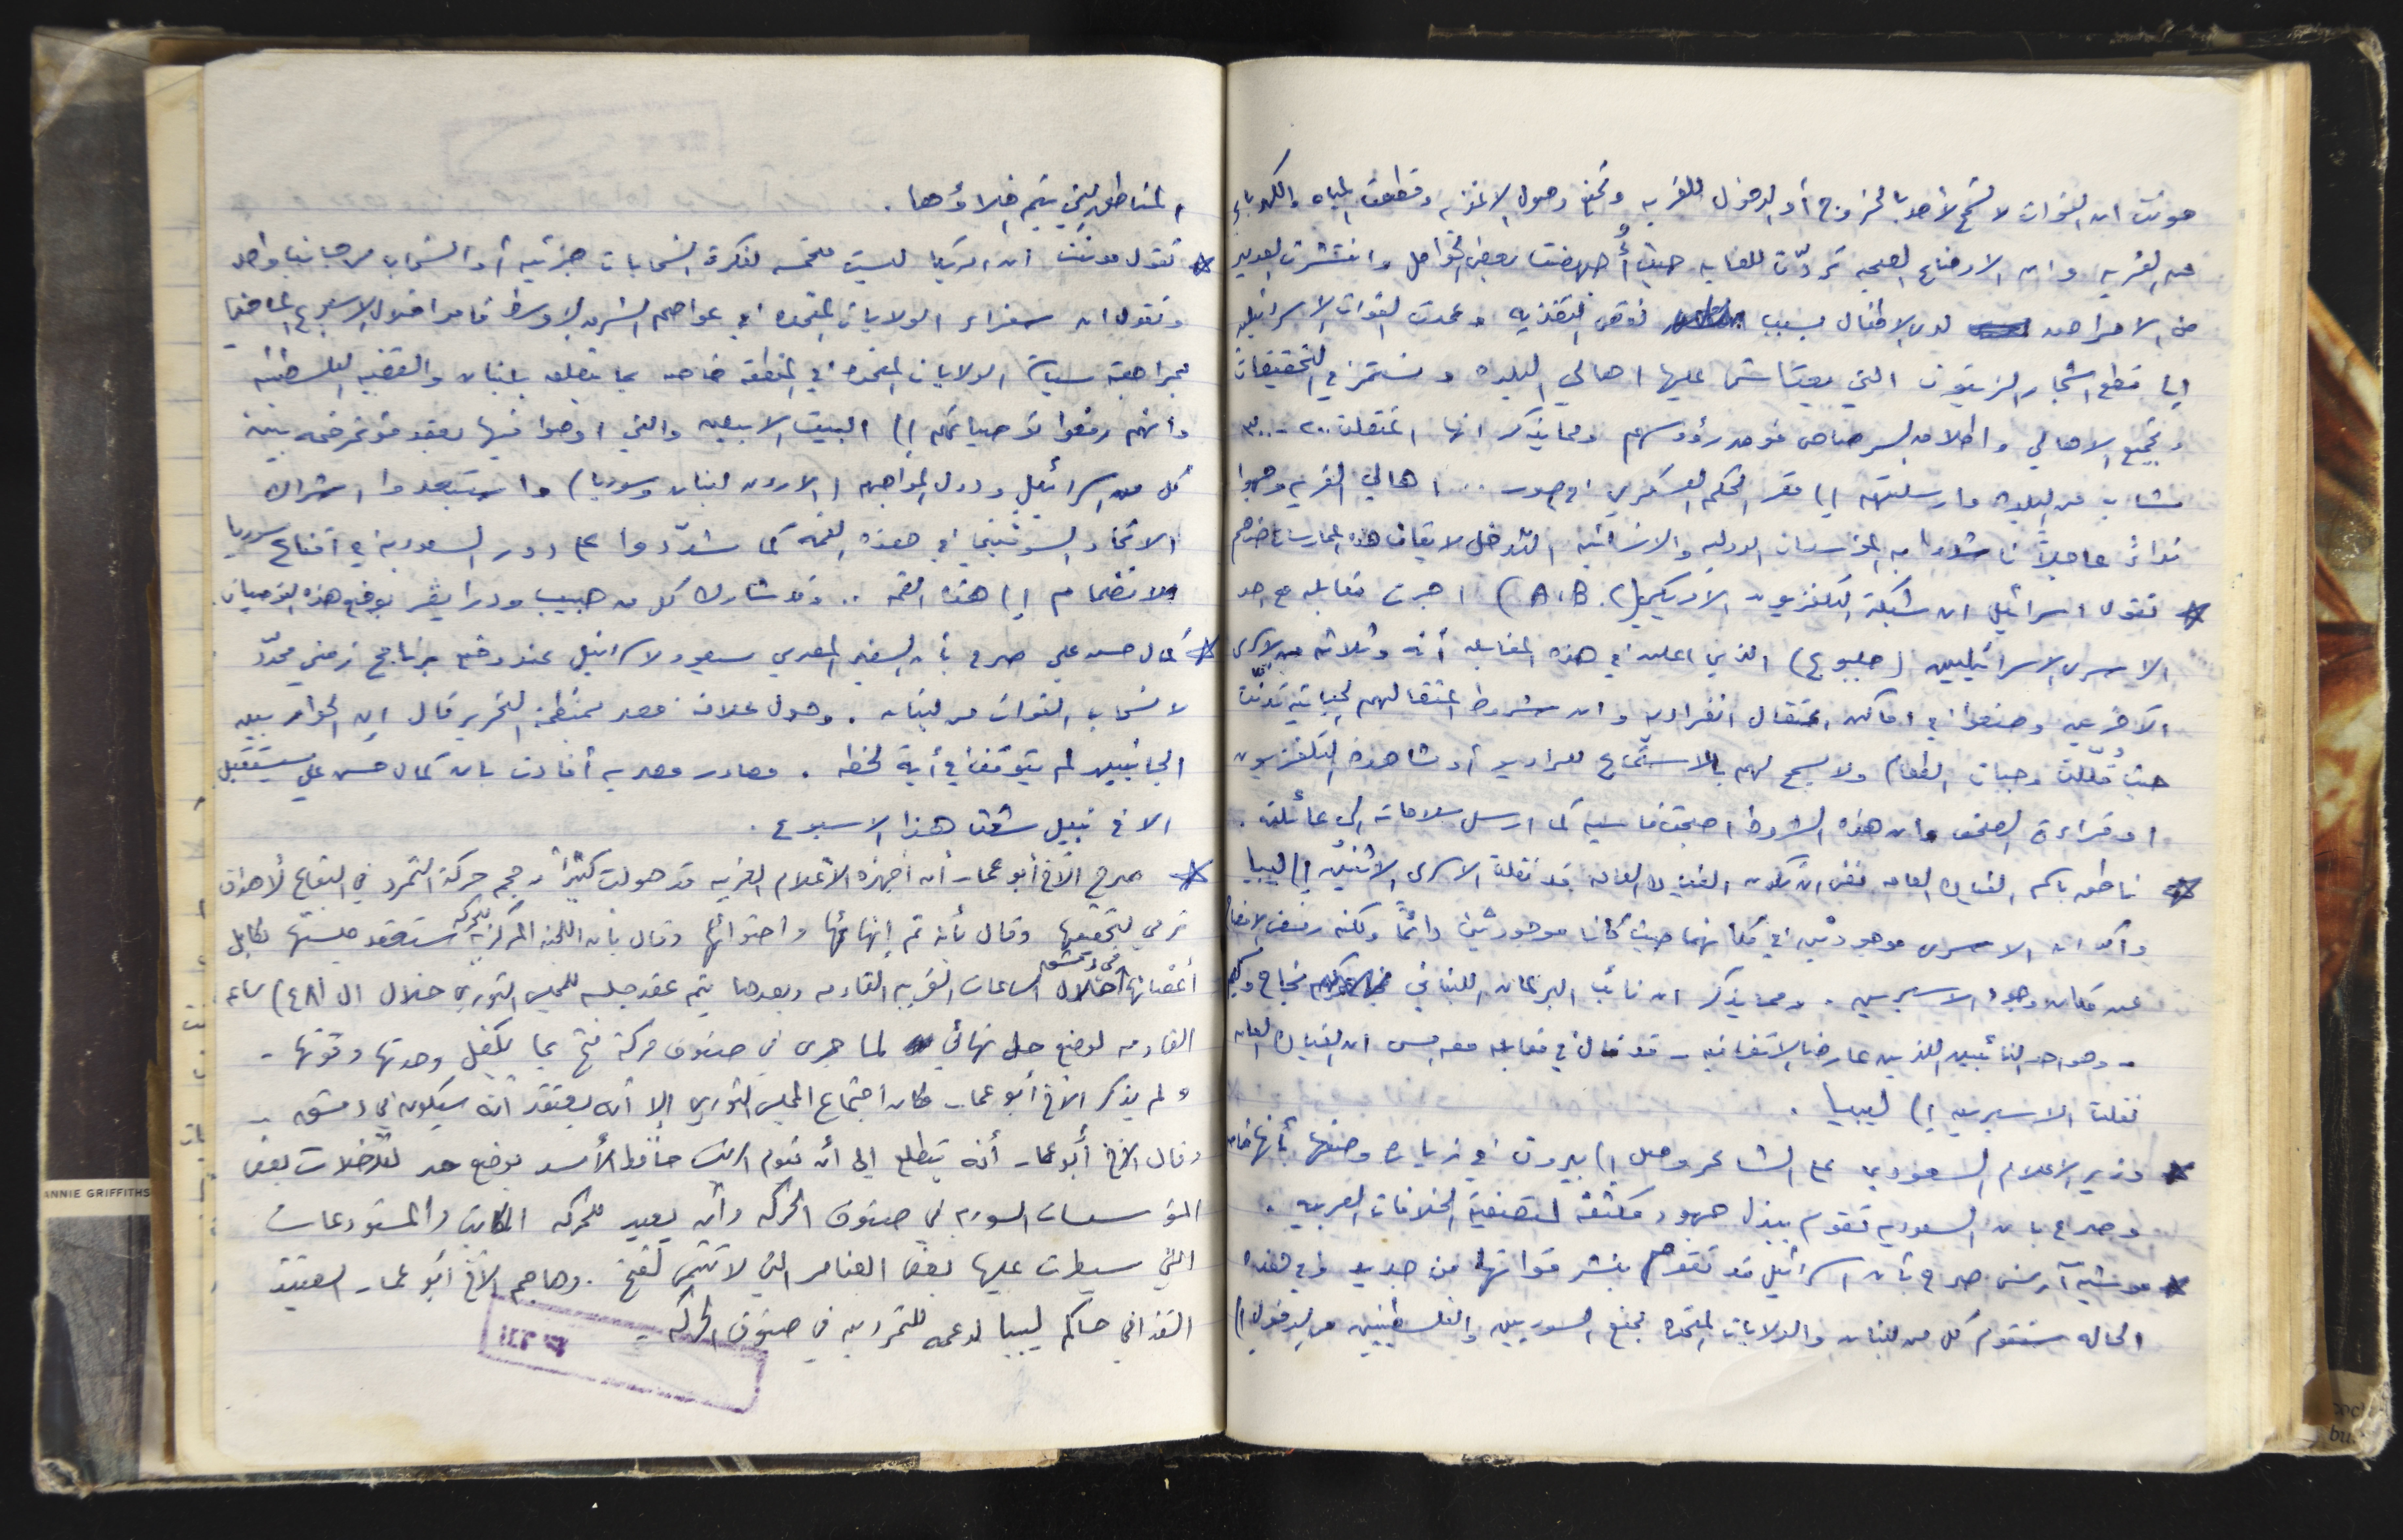 مونت ان القوات لا تسمح لأحد بالخروج أو الدخول للقرية وتمنع وصول الاغذيه وقطعت المياه والكهرباء
عن القريه وان الاوضاع الصحيه تردّت للغايه حيث أُجهضت بعض الحوامل وانتشرت العديد
من الامراض لدى الاطفال بسبب نقص التغذيه وعمدت القوات الاسرائيليه
الى قطع اشجار الزيتون التي يعتاش عليها اهالي البلده وتستمر في التحقيقات
وتجميع الاهالي واطلاق الرصاص فوق رؤوسهم ومما يذكر انها اعتقلت ٢٠٠ - ٣٠٠
شاب من البلده وارسلتهم الى مقر الحكم العسكري في صور .. اهالي القريه وجهوا
نداءً عاجلاً ناشدوا به المؤسسات الدوليه والانسانيه التدخل لايقاف هذه الممارسات ضدهم
* تقول اسرائيل ان شبكة التلفزيون الامريكيه (A.B.) اجرت مقابله مع احد
الاسرى الاسرائيليين (جلبوع) الذي اعلن في هذه المقابله أنه وثلاثه من الاسرى
الآخرين وضعوا في اماكن اعتقال انفراديه وان شروط اعتقالهم الحياتيه تدنّت
حيث قُلّلت وجبات الطعام ولا يسمح لهم بالاستماع للراديو أو مشاهدة التلفزيون
او قراءة الصحف وان هذه الشروط اصبحت قاسيه كما ارسل سلاماته الى عائلته .
* ناطق باسم القياده العامه نفى ان تكون القياده العامه قد نقلت الاسرى الاثنين الى ليبيا
وأكد ان الاسرى موجودين في مكانهما حيث كانا موجودين دائماً ولكنه رفض الافصاح
عن مكان وجود الاسيرين . ومما يذكر ان نائب البرلمان اللبناني نجاح واكيم
- وهو احد النائبين اللذين عارضا الاتفاقيه - قد قال في مقابله معه امس ان القياده العامه
نقلت الاسيرين الى ليبيا .
* وزير الاعلام السعودي علي الشاعر وصل الى بيروت في زياره وصفها بأنها خاصه
وصرح بان السعوديه تقوم ببذل جهود مكثفة لتصفية الخلافات العربيه .
* موشيه آرنس صرح بأن اسرائيل قد تقوم بنشر قواتها من جديد وفي هذه
الحاله ستقوم كل من لبنان والولايات المتحده بمنع السوريين والفلسطينيين من الدخول الى
المناطق التي يتم اخلاؤها .
* تقول مونت ان امريكا ليست متحمسه لفكرة انسحابات جزئيه أو انسحاب من جانب واحد
وتقول ان سفراء الولايات المتحده في عواصم الشرق الاوسط قاموا خلال الاسبوع الماضي
بمراجعة سياسة الولايات المتحده في المنطقه خاصه بما يتعلق بلبنان والقضيه الفلسطينيه
وانهم رفعوا توصياتهم الى البيت الابيض والتي اوصوا فيها بعقد مؤتمر قمه بين
كل من اسرائيل ودول المواجهه (الاردن لبنان وسوريا) واستبعدوا اشراك
الاتحاد السوفييتي في هذه القمه كما شدّدوا على دور السعوديه في اقناع سوريا
للانضمام الى هذه القمه .. وقد شارك كل من حبيب ودرايبر بوضع هذه التوصيات .
* كمال حسن علي صرح بأن السفير المصري سيعود لاسرائيل عند وضع برنامج زمني محدّد
لانسحاب القوات من لبنان . وحول علاقة مصر بمنظمة التحرير قال ان الحوار بين
الجانبين لم يتوقف في أية لحظه . مصادر مصريه أفادت بان كمال حسن علي سيستقبل
الاخ نبيل شعث هذا الاسبوع .
* صرح الأخ أبو عمار أن أجهزة الاعلام الغربيه قد هولت كثيراً حجم حركة التمرد في البقاع لأهداف
ترمي لتحقيقها وقال بأنه تم إنهائها واحتوائها وقال بان اللجنه المركزيه للحركه ستعقد جلستها بكامل
أعضائها في دمشق خلال الساعات القريبه القادمه وبعدها يتم عقد جلسه للمجلس الثوري خلال ال (٤٨) ساعه
القادمه لوضع حل نهائي لما جرى في صفوف حركة فتح بما يكفل وحدتها وقوتها -
ولم يذكر الأخ أبو عمار مكان اجتماع المجلس الثوري إلا أنه يعتقد أنه سيكون في دمشق -
وقال الاخ أبو عمار أنه يتطلع الى أن يقوم الرئيس حافظ الأسد بوضع حد لتدخلات بعض
المؤسسات السوريه في صفوف الحركه وأن يعيد للحركه المكاتب والمستودعات
التي سيطرت عليها بعض العناصر التي لا تنتمي لفتح . وهاجم الأخ أبو عمار العقيد
القذافي حاكم ليبيا لدعمه المتمردين في صفوف الحركه -
ANNIE GRIFFITHS